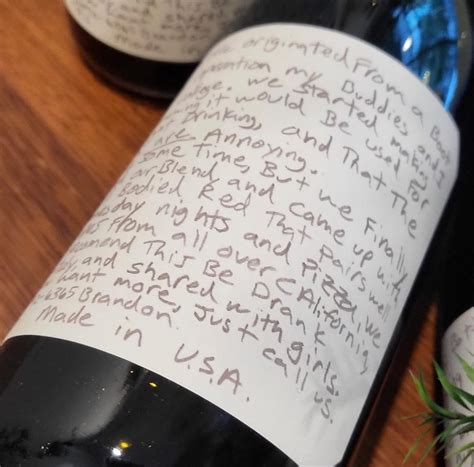 originated From a Boat
my Buddies and I
we started making
it would Be used For
Drinking, and That The
are Annoying.
some Time, But we Finally
Blend and came up with
Bodied Red That Pairs well
nights and Pizza, We
From all over California,
This Be Drank
and shared with girls.
want more, Just call us.
6365 Brandon.
Made in U.S.A.